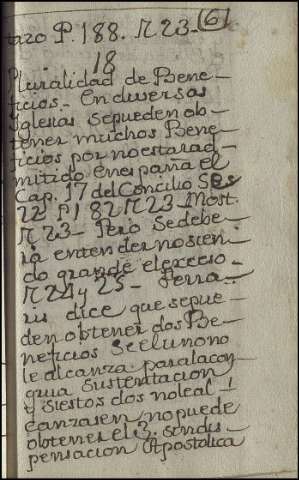 tazo P. 188. N 23- (6)
18
Pluralidad de Bene-
ficios.- En diversas
Iglesias se pueden ob-
tener muchos Bene-
ficios por no estar ad-
mitido en españa el
Cap. 17 del Concilio Ses
22 P. 182 N 23 Most.
N 23- Pero se debe-
ra entender no sien-
do grande el exceso-
N 24 y 25- Ferra-
ris dice que se pue-
den obtener dos Be-
neficios si el uno no
le alcanza para la con-
grua sustentacion
y si estos dos no le al-
canzasen no puede
obtener el 3. sin dis-
pensacion Apostolica